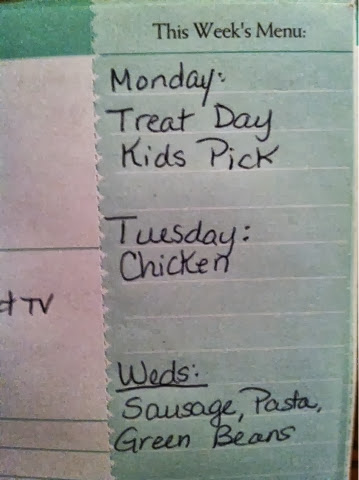 This Week's Menu:
Monday:
Treat Day
Kids Pick
Tuesday:
Chicken
TV
Weds:
Sausage, Pasta,
Green Beans